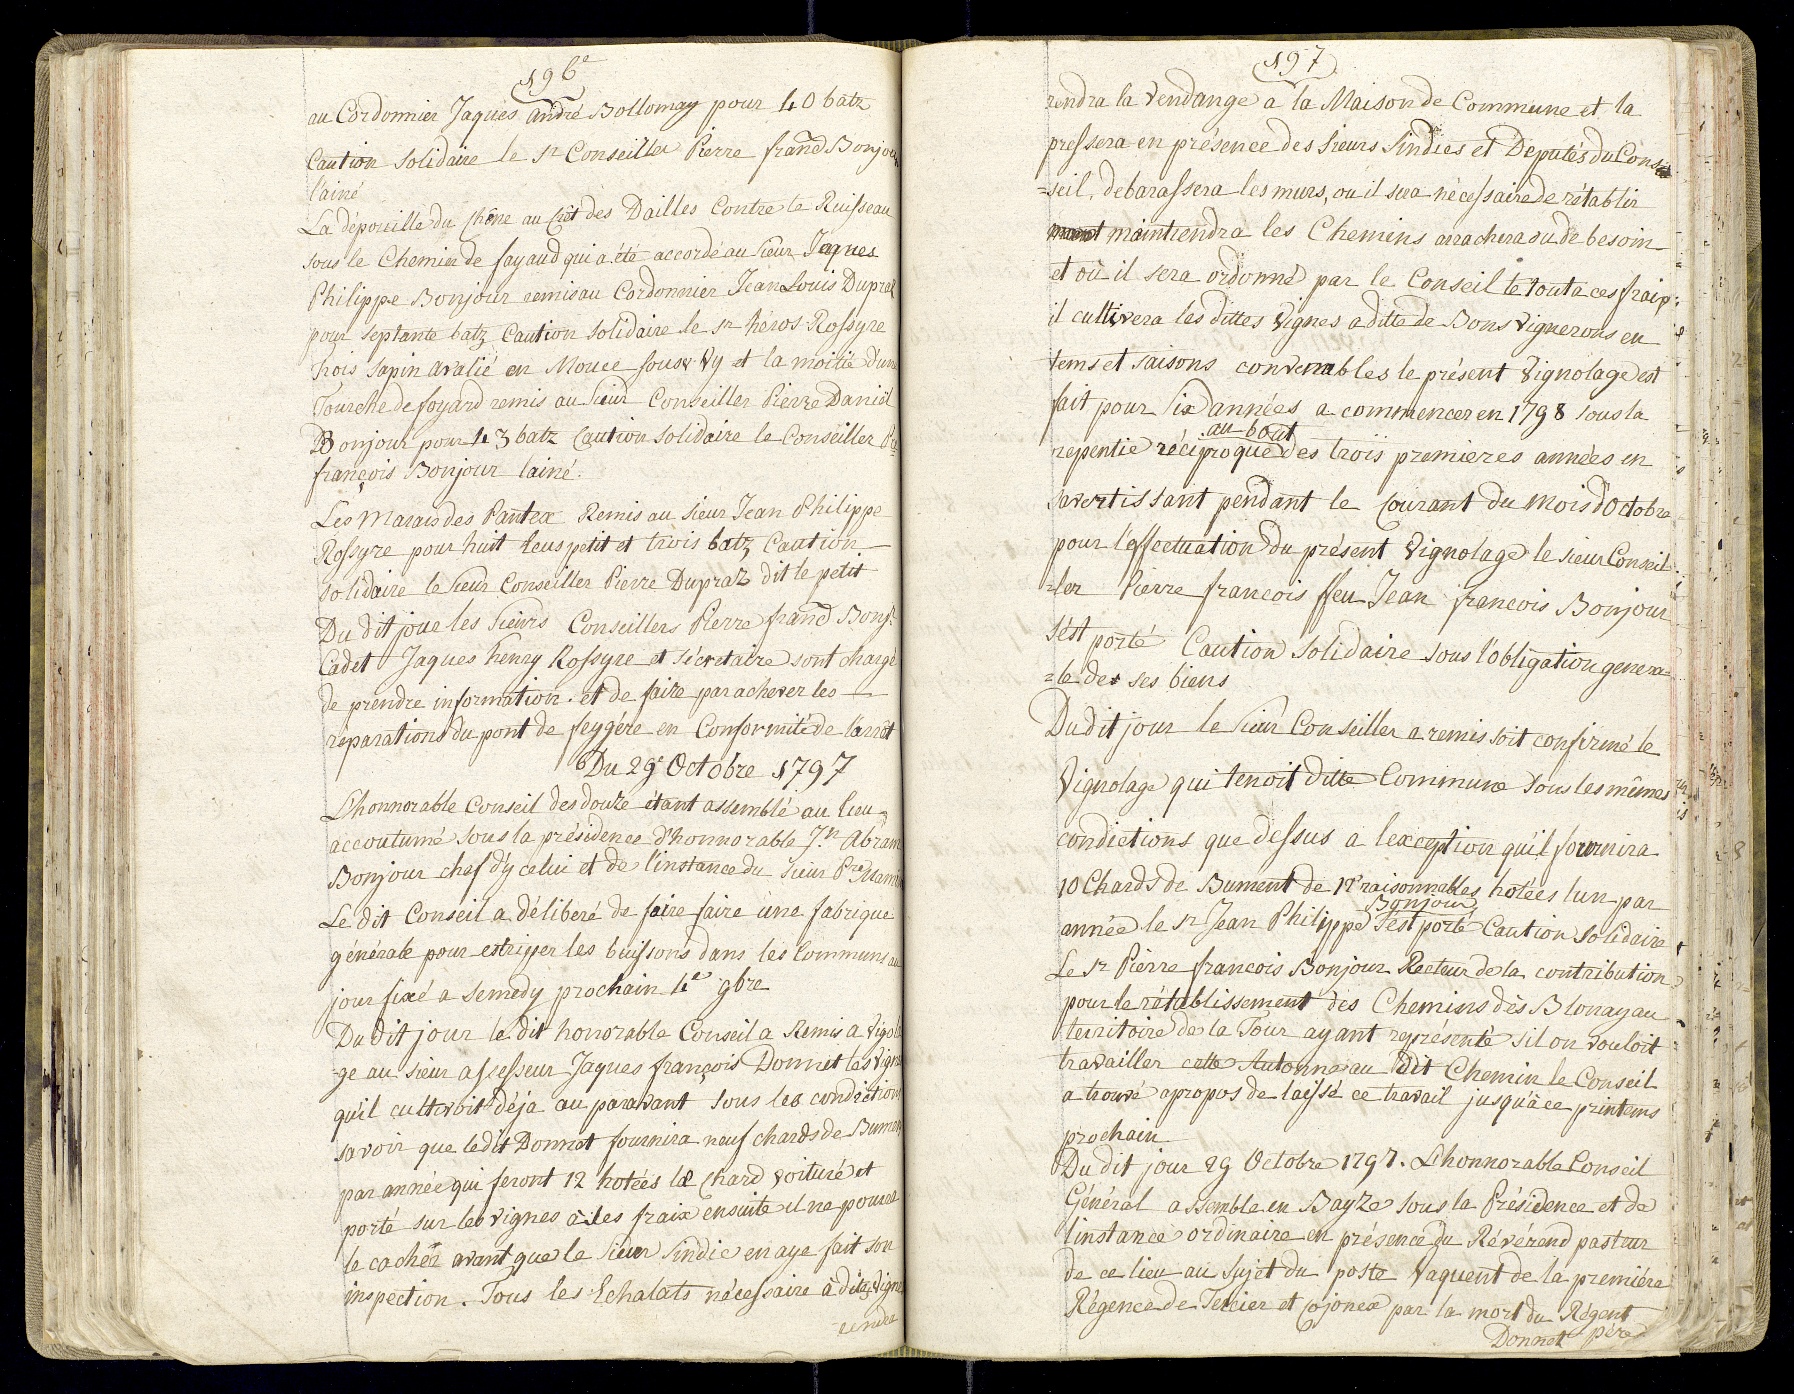 196e
au Cordonnier Jaques andré Bollomay pour 40 batz
Caution solidaire le Sr Conseiller Pierre frand Bonjour
l'ainé
La dépouille du Chêne au Crêt des Dailles Contre le Ruisseau
sous le Chemin de fayaud qui a été accordé au sieur Jaques
Philippe Bonjour remis au Cordonnier Jean Louis Dupraz
pour septante batz Caution solidaire le sr héros Rossyre
trois sapin avalié en Mouce sous Vy et la moitié d'une
Fourche de foyard remis au Sieur Conseiller Pierre Daniél
Bonjour pour 43 batz Caution solidaire le Conseiller Pre
françois Bonjour lainé.
Les Marais des Pantex Remis au sieur Jean Philippe
Rossyre pour huit heus petit et trois batz Caution
solidaire le sieur Conseiller Pierre Dupraz dit le petit
Du dit joue les sieurs Conseillers Pierre frand Bonjr
Cadet Jaques henry Rossyre et sécretaire sont chargé
de prendre information. et de faire parachever les
reparations du pont de feygére en Conformité de l'arrêt
Du 29e Octobre 1797
L'honnorable Conseil des douze étant assemblé au lieu
accoutumé sous la présidence d'honnorable Jn Abram
Bonjour chef d'ycelui et de l'instance du Sieur Pre Mamin
Le dit Conseil a déliberé de faire faire une fabrique
générale pour estripper les buissons dans les Communs au
jour fixé a semedy prochain 4e 9bre
Du dit jour le dit honorable Conseil a Remis a Vigola
=ge au sieur assesseur Jaques françois Donnet les Vignes
qu'il cultivoit déja au paravant sous les condictions
savoir que le dit Donnet fournira neuf chards de Bument
par année qui feront 12 hotées le Chard voituré et
porté sur les vignes à ses fraix ensuite il ne pourra
le cacher avant que le Sieur Sindic en aye fait son
inspection. Tous les Echalats nécessaire à dites Vignes
rendra
197
rendra la Vendange a la Maison de Commune et la
pressera en présence des sieurs Sindics et Députés du Con
=seil, debarassera les murs, ou il sera nécessaire de rétablir
maintiendra les Chemins arrachera ou de besoin
et où il sera ordonné par le Conseil le tout a ces fraix:
il cultivera les dittes Vignes a ditte de Bons Vignerons en
tems et saisons convenables le présent Vignolage est
fait pour Six années a commencer en 1798 sous la
au bout
repentie réciproque des trois premieres années en
savertissant pendant le Courant du Mois d'Octobre
pour l'effectuation du présent Vignolage le sieur Conseil
=ler Pierre francois ffeu Jean francois Bonjour
s'est porté Caution solidaire sous l'obligation genera
=le de ses biens
Du dit jour le Sieur Conseiller a remis soit confirmé le
Vignolage qui tenoit ditte Commune sous les mêmes
condictions que dessus a lexception quil fournira
10 Chards de Bument de 12 raisonnables hotées lun par
Bonjour
année le sr Jean Philippe s'est porté Caution solidaire
Le sr Pierre francois Bonjour Recteur de la contribution
pour le rétablissement des Chemins dès Blonay au
territoire de la Tour ayant représenté sil on vouloit
travailler cette Automne au dit Chemin le Conseil
a trouvé apropos de laissé ce travail jusqu'à ce printems
prochain
Du dit jour 29 Octobre 1797. L'honnorable Conseil
Général assemble en Bayze sous la Présidence et de
l'instance ordinaire en présence du Révérend pasteur
de ce lieu au sujet du poste Vaquent de la premiére
Régence de Tercier et Cojonex par la mort du Régent
Donnet pére